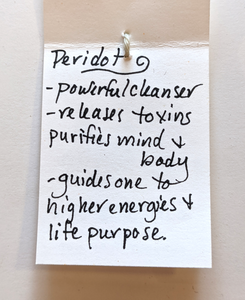 Peridot
-powerful cleanser
-releases toxins
purifies mind &
body
-guides one to
higher energies &
life purpose.